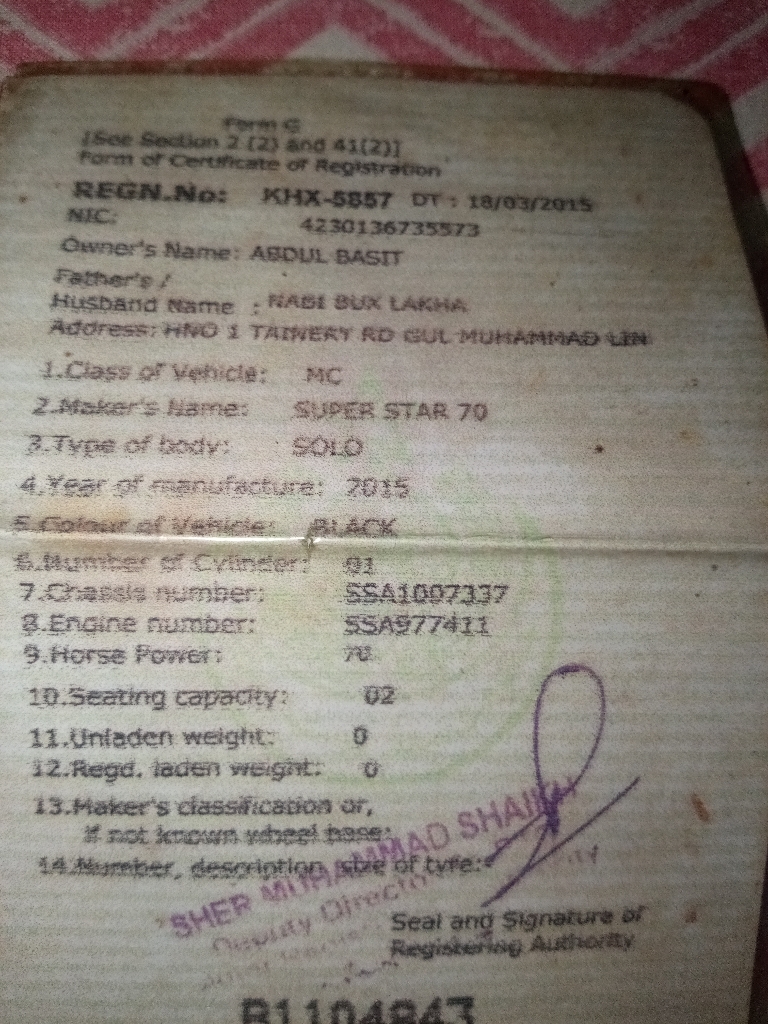 Form G
[See Section 2 (2) and 41(2)]
Form of Certificate of Registration
REGN.No: KHX-5857 DT : 18/03/2015
NIC: 4230136735573
Owner's Name: ABDUL BASIT
Father's /
Husband Name : NABI BUX LAKHA
Address: HNO 1 TAINERY RD GUL MUHAMMAD LIN
1.Class of Vehicle: MC
2.Maker's Name: SUPER STAR 70
3.Type of body: SOLO
4.Year of manufacture: 2015
5.Colour of Vehicle: BLACK
6.Number of Cylinder: 01
7.Chassis number: SSA1007337
8.Engine number: SSA977411
9.Horse Power: 70
10.Seating capacity: 02
11.Unladen weight: 0
12.Regd. laden weight: 0
13.Maker's classification or,
if not known wheel base:
14.Number, description, size of tyre:
SHER MUHAMMAD SHAIKH
Deputy Director
Seal and Signature of
Registering Authority
B1104843